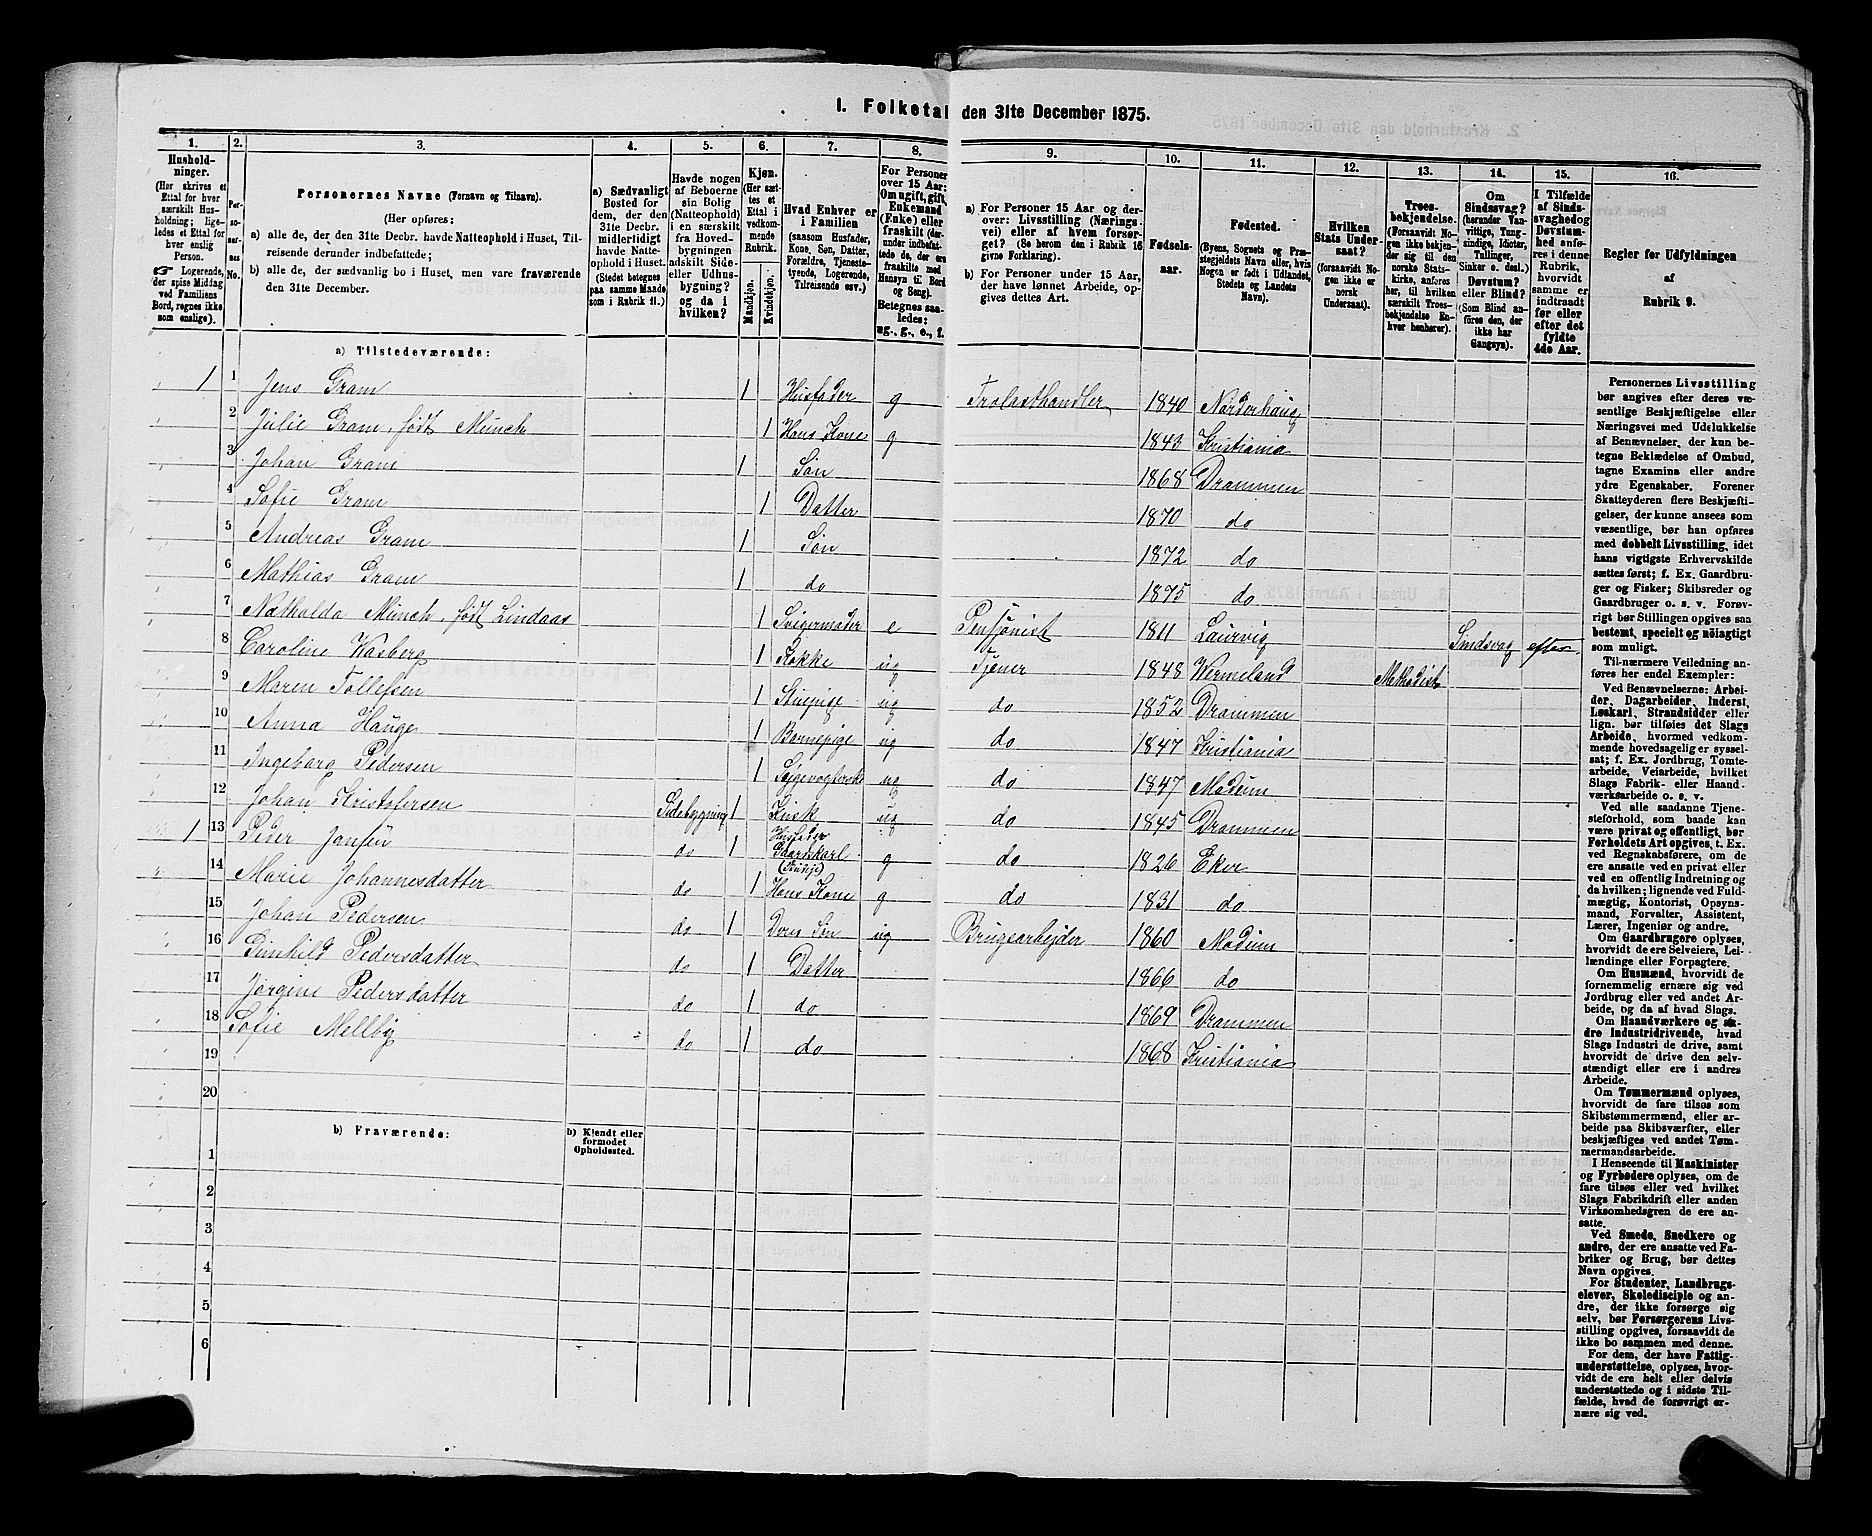 1. Folketal den 31te December 1875.
1.
2.
3.
4.
5.
6.
7.
8.
9.
10.
11.
12.
13.
14.
15.
16.
Hushold-
ninger.
(Her skrives et
Ettal for hver
særskilt Hus-
holdning; lige-
ledes et Ettal for
hver enslig
Person.
☞ Logerende,
der spise Middag
ved Familiens
Bord, regnes ikke
som enslige).
Per-
so-
ner-
nes
No.
Personernes Navne (Fornavn og Tilnavn).
(Her opføres:
a) alle de, der den 31te Decbr. havde Natteophold i Huset, Til-
reisende derunder indbefattede;
b) alle de, der sædvanlig bo i Huset, men vare fraværende
den 31te December.
a) Sædvanligt
Bosted for
dem, der den
31te Decbr.
midlerlidigt
havde Natte-
ophold i Huset.
(Stedet betegnes
paa samme Maade
som i Rubrik 11.)
Havde nogen
af Beboerne
sin Bolig
(Natteophold)
i en særskilt
fra Hoved-
bygningen
adskilt Side-
eller Udhus-
bygning?
og da i
hvilken?
Kjøn.
(Her sæt-
tes et
Ettal i
vedkom-
mende
Rubrik.
Mandkjøn.
Kvindekjøn.
Hvad Enhver er
i Familien
(saasom Husfader,
Kone, Søn, Datter,
Forældre, Tjeneste-
tyende, Logerende,
Tilreisende osv.)
For Personer
over 15 Aar:
Om ugift, gift,
Enkemand
(Enke) eller
fraskilt (der-
under indbefat-
tede de, der ere
fraskilte med
Hensyn til Bord
og Seng).
Betegnes saa-
ledes:
ug., g., e., f.
a) For Personer 15 Aar og der-
over: Livsstilling (Nærings-
vei) eller af hvem forsør-
get? (Se herom den i Rubrik 16
givne Forklaring).
b) For Personer under 15 Aar,
der have lønnet Arbeide, op-
gives dettes Art.
Fødsels-
aar.
Fødested.
(Byens, Sognets og Præ-
stegjeldets Navn eller, hvis
Nogen er født i Udlandet,
Stedets og Landets
Navn).
Hvilken
Stats Under-
saat?
(forsaavidt No-
gen ikke er
norsk
Undersaat).
Troes-
bekjendelse.
(Forsaavidt No-
gen ikke bekjen-
der sig til den
norske Stats-
kirke, anføres
her, til hvilken
særskilt Troes-
bekjendelse En-
hver henhører).
Om
Sindssvag?
(herunder Van-
vittige, Tung-
sindige, Idioter,
Tullinger,
Sinker o. desl.)
Døvstum?
eller Blind?
(Som Blind an-
føres den, der
ikke har
Gangsyn).
I Tilfælde
af Sinds-
svaghed og
Døvstum-
hed anfø-
res i denne
Rubrik,
hvorvidt
samme er
indtraadt
før eller
efter det
fyldte
4de Aar.
Regler for Udfyldningen
af
Rubrik 9.
a) Tilstedeværende:
1 1 Jens Gram 1 Husfader g Trolasthandler 1840 Norderhaug
2 Julie Gram, født Münch 1 Hans Kone g 1843 Kristiania
3 Johan Gram 1 Søn 1868 Drammen
4 Sofie Gram 1 Datter 1870 do
5 Andreas Gram 1 Søn 1872 do
6 Mathias Gram 1 do 1875 do
7 Nathalda Münch, født Lindaas 1 Svigermoder e Pensjonist 1811 Laurvig Sindsvag efter
8 Caroline Wasberg 1 Kokke ug Tjener 1848 Wermeland Methodist
9 Maren Tollefsen 1 Stuepige ug do 1852 Drammen
10 Anna Hauge 1 Barnepige ug do 1847 Kristiania
11 Ingeborg Pedersen 1 Sygevogterske ug do 1847 Modum
12 Johan Kristofersen Sidebygning 1 Kusk ug do 1845 Drammen
1 13 Peder Jansen do 1 Husfader Gaardskarl g do 1826 Eker
14 Marie Johannesdatter do 1 Hans Kone g do 1831 do
15 Johan Pedersen do 1 Deres Søn ug Brugsarbejder 1860 Modum
16 Gunhild Pedersdatter do 1 Datter 1866 do
17 Jørgine Pedersdatter do 1 do 1869 Drammen
18 Sofie Mellby do 1 do 1868 Kristiania
19
20
b) Fraværende:
b) Kjendt eller
formodet
Opholdssted.
1
2
3
4
5
6
Personernes Livsstilling
bør angives efter deres væ-
sentlige Beskjæftigelse eller
Næringsvei med Udelukkelse
af Benævnelser, der kun be-
tegne Beklædelse af Ombud,
tagne Examina eller andre
ydre Egenskaber. Forener
Skatteyderen flere Beskjæfti-
gelser, der kunne ansees som
væsentlige, bør han opføres
med dobbelt Livsstilling, idet
hans vigtigste Erhvervskilde
sættes først; f. Ex. Gaardbru-
ger og Fisker; Skibsreder og
Gaardbruger o. s. v. Forøv-
rigt bør Stillingen opgives saa
bestemt, specielt og nøiagtigt
som muligt.
Til nærmere Veiledning an-
føres her endel Exempler:
Ved Benævnelserne: Arbei-
der, Dagarbeider, Inderst,
Løskarl, Strandsidder eller
lign. bør tilføies det Slags
Arbeide, hvormed vedkom-
mende hovedsagelig er syssel-
sat; f. Ex. Jordbrug, Tomte-
arbeide, Veiarbeide, hvilket
Slags Fabrik- eller Haand-
værksarbeide o. s. v.
Ved alle saadanne Tjene-
steforhold, som baade kan
være privat og offentligt, bør
Forholdets Art opgives, t. Ex.
ved Regnskabsførere, om de
ere ansatte ved en privat eller
ved en offentlig Indretning og
da hvilken; lignende ved Fuld-
mægtig, Kontorist, Opsyns-
mand, Forvalter, Assistent,
Lærer, Ingeniør og andre.
Om Gaardbrugere oplyses,
hvorvidt de ere Selveiere, Lei-
lændinge eller Forpagtere.
Om Husmænd, hvorvidt de
fornemmelig ernære sig ved
Jordbrug eller ved andet Ar-
beide, og da af hvad Slags.
Om Haandværkere og an-
dre Industridrivende, hvad
Slags Industri de drive, samt
hvorvidt de drive den selv-
stændigt eller ere i andres
Arbeide.
Om Tømmermænd oplyses,
hvorvidt de fare tilsøs som
Skibstømmermænd, eller ar-
beide paa Skibsværfter, eller
beskjæftiges ved andet Tøm-
mermandsarbeide.
I Henseende til Maskinister
og Fyrbødere oplyses, om de
fare tilsøs eller ved hvilket
Slags Fabrikdrift eller anden
Virksomhedsgren de ere an-
satte.
Ved Smede, Snedkere og
andre, der ere ansatte ved Fa-
briker og Brug, bør dettes
Navn opgives.
For Studenter, Landbrugs-
elever, Skoledisciple og an-
dre, der ikke forsørge sig
selv, bør Forsørgerens Livs-
stilling opgives, forsaavidt de
ikke bo sammen med denne.
For dem, der have Fattig-
understøttelse, oplyses, hvor-
vidt de ere helt eller delvis
understøttede og i sidste Til-
fælde, hvad de forøvrigt er-
nære sig ved.